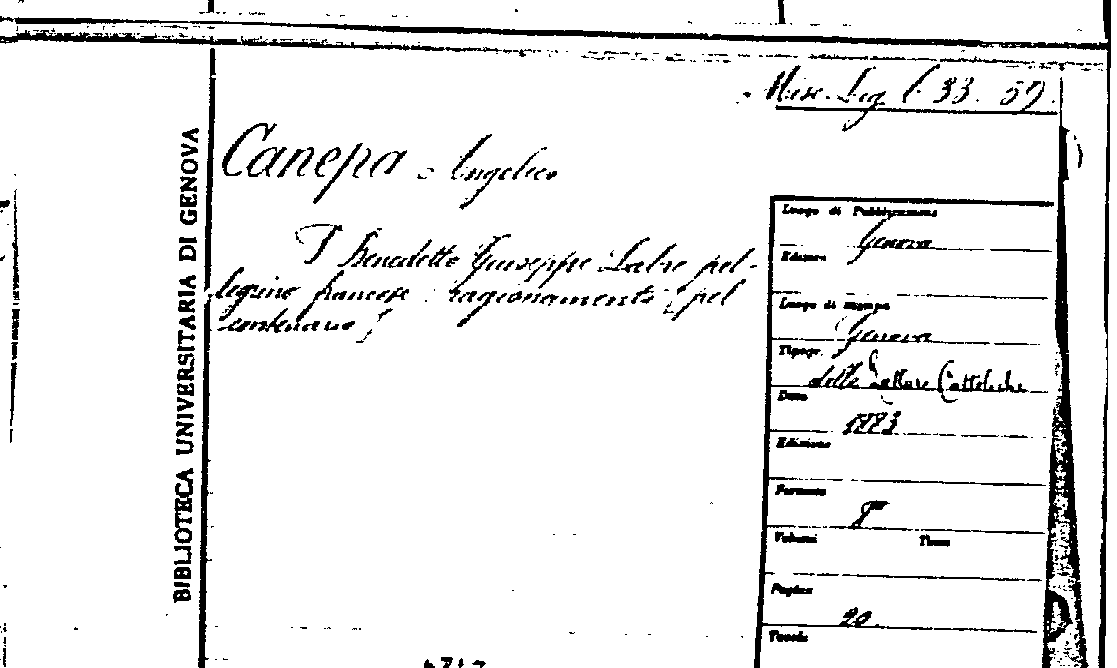 Misc. Lig. C. 33. 57.
BIBLIOTECA UNIVERSITARIA DI GENOVA
Canepa - Angelico
S Benedetto Giuseppe Labre pel-
legrino francese: ragionamento [pel
centenario]
Luogo di Pubblicazione
Genova
Editore
Luogo di stampa
Genova
Tipogr.
delle Letture Cattoliche
Data
1883
Edizione
Formato
8°
Volumi Tomi
Pagine
20.
Tavole